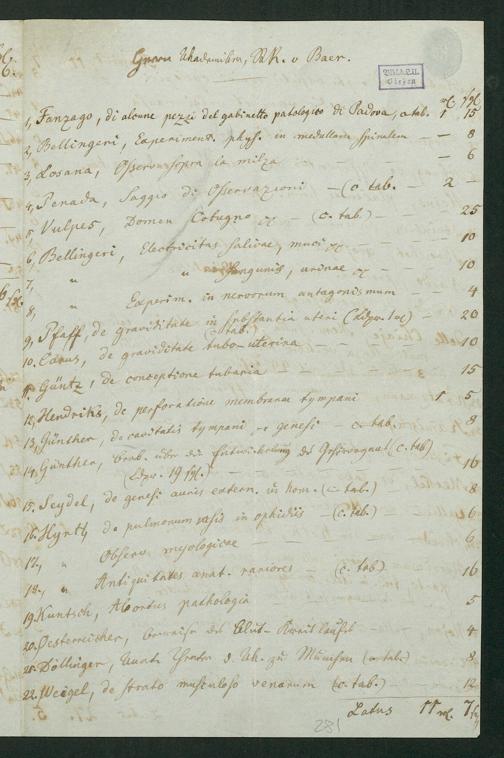 Herrn Akademiker, v Baer.
rl. sgl.
1, Fanzago, di alcune pezzi del gabinetto patologico di Padova, c. tab. 1 15
2, Bellingeri, Experiment. phys. in medullam spinalem — — 8
3, Losana, Osservaz. sopra la milza — 6
4, Penada, Saggio di Osservazioni — (c. tab. — 2 —
5, Vulpes, Domen Cotugno — (c. tab.) — — 25
6, Bellingeri, Electricitas salivae, muci, — — 10
7, " " Sanguinis, urinae — — 10
8, " Experim. in nervorum antagonismum — 4
9, Pfaff, de graviditate in substantia uteri — 20
(c. tab.)
10. Carus, de graviditate tubo-uterina — 10
11. Güntz, de conceptione tubaria — 15
12, Hendriks, de perforatione membranae tympani 1 5
13, Günther, de cavitatis tympani genesi — c. tab. 8
14. Günther, Beob. über die Entwickelung des Gehörorgans (c. tab)
— — 16
15. Seydel, de genesi auris extern. in hom. (c tab.) — 8
16. Hyrtl, de pulmonum vasis in ophidiis — (c. tab.) — 6
17, " Observ. myologicae — — 6
18, " Antiquitates anat. rariores — (c. tab) 16
19. Kuntsch, Abortus pathologia 5
20. Oesterreicher, des Blut-Kreislaufes — 4
21. Döllinger, zu München (c tab.) 8
22. Weigel, de strato musculoso venarum (c. tab.) — 12
Latus 11 rl. 7
281